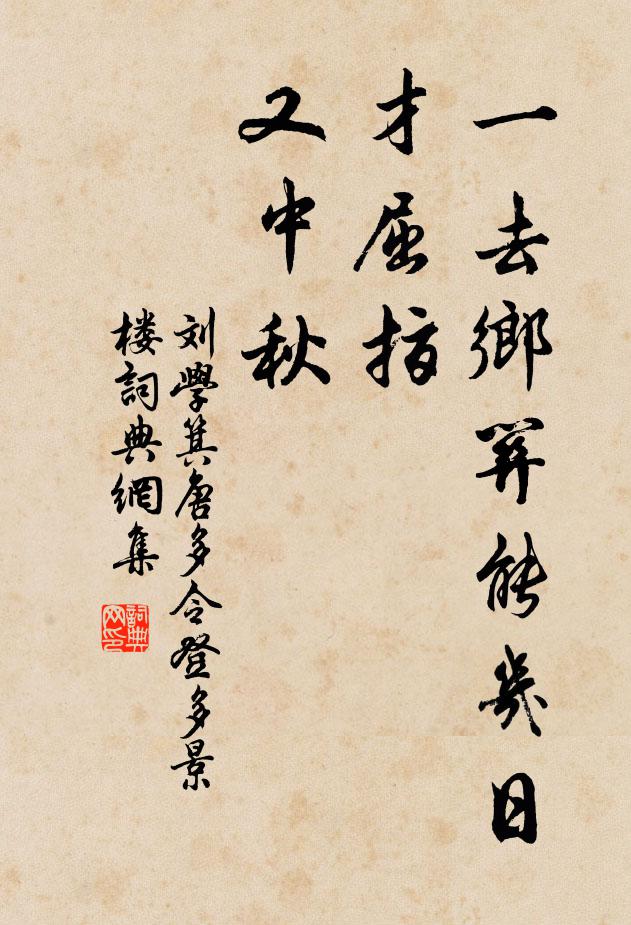 一去鄉關能幾日
才屈指
又中秋
刘學箕唐多令登多景
楼詞典網集
詞典
网印